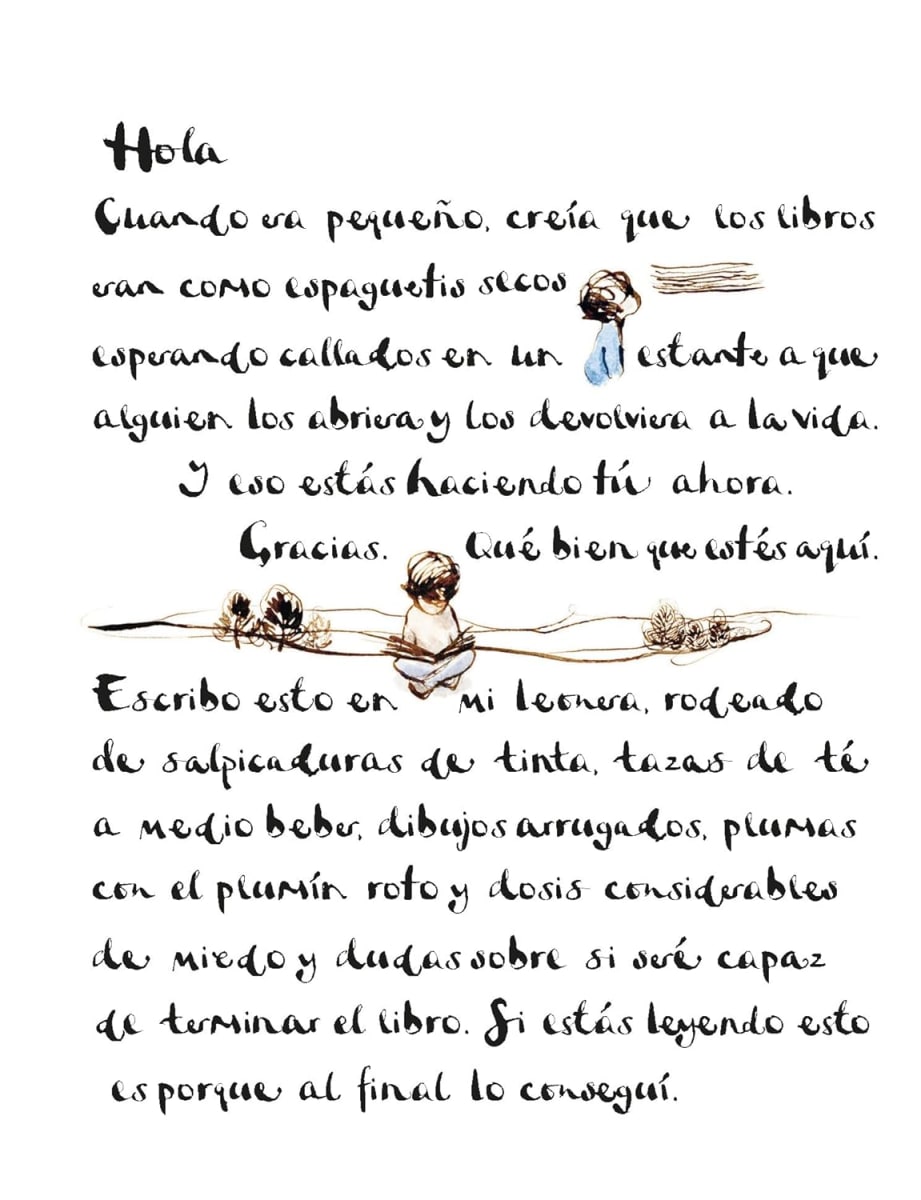 Hola
Cuando era pequeño, creía que los libros
eran como espaguetis secos
esperando callados en un estante a que
alguien los abriera y los devolviera a la vida.
Y eso estás haciendo tú ahora.
Gracias. Qué bien que estés aquí.
Escribo esto en mi leonera, rodeado
de salpicaduras de tinta, tazas de té
a medio beber, dibujos arrugados, plumas
con el plumín roto y dosis considerables
de miedo y dudas sobre si seré capaz
de terminar el libro. Si estás leyendo esto
es porque al final lo conseguí.